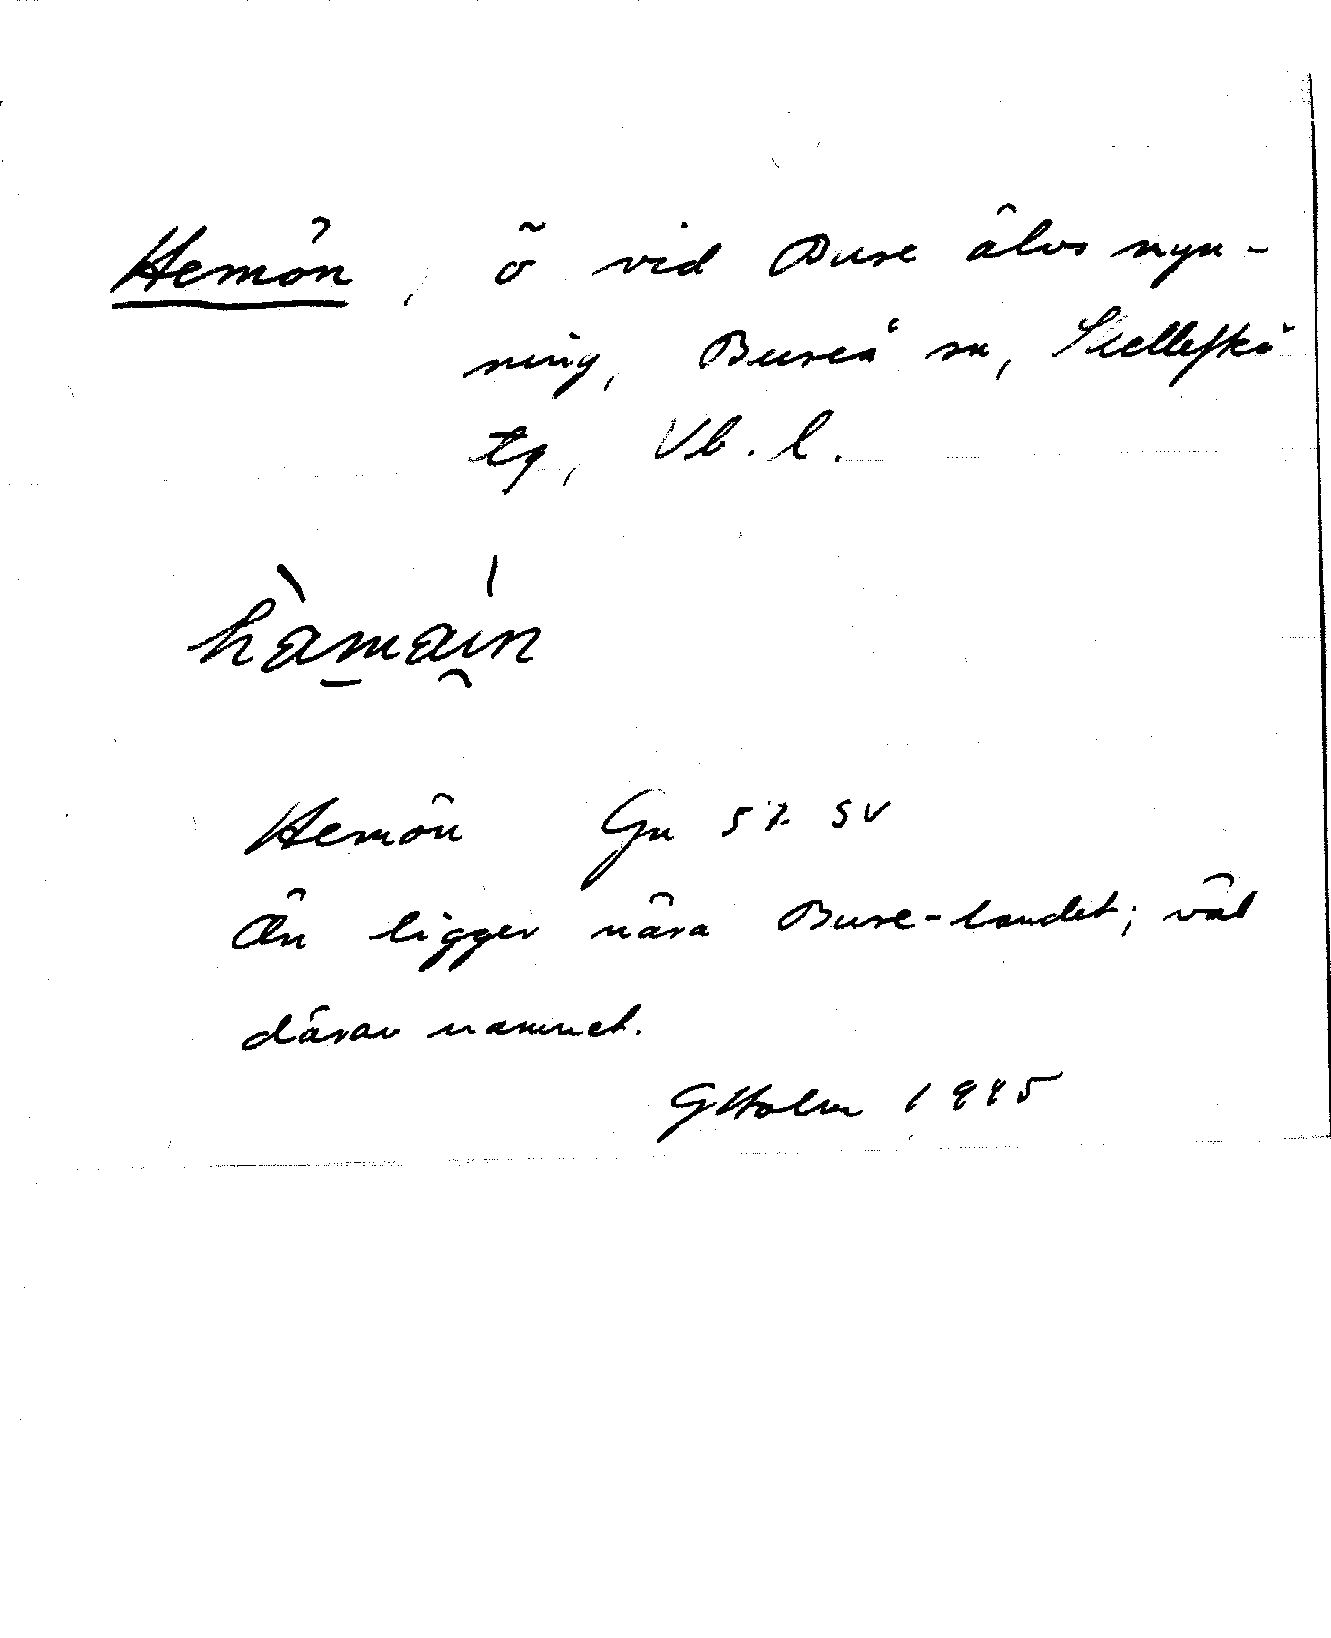 Hemön, ö vid Bure älvs myn-
ning, Bureå sn, Skellefteå
tg, Vb. l.
hàma̲i̯n
Hemön Gn 57 SV
Ön ligger nära Bure-landet; väl
därav namnet.
G Holm 1945